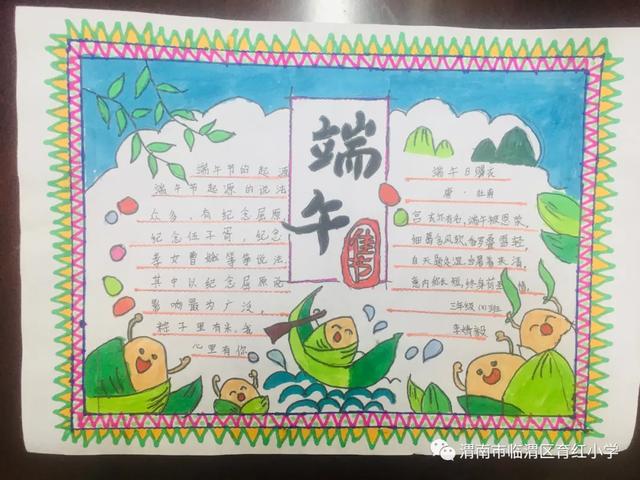 端午
佳节
端午节的起源
端午节起源的说法
众多,有纪念屈原
纪念伍子胥,纪念
孝女曹娥等等说法,
其中以纪念屈原说
影响最为广泛,
粽子里有米,我
心里有你
端午日赐衣
唐·杜甫
宫衣亦有名,端午被恩荣。
细葛含风软,香罗叠雪轻。
自天题处湿,当暑著来清。
意内称长短,终身荷圣情。
三年级(1)班
李
渭南市临渭区育红小学